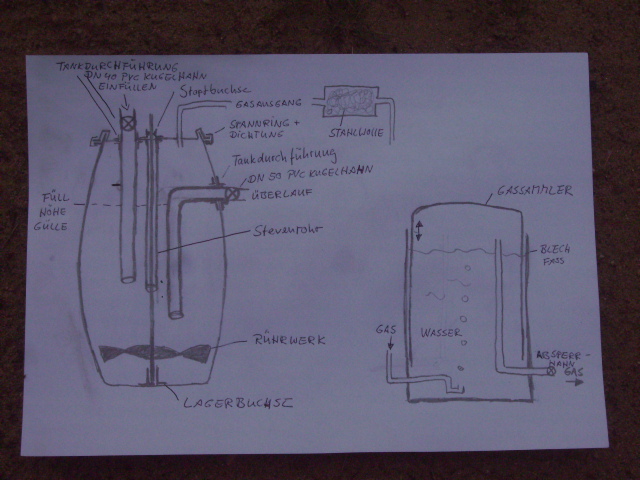 TANKDURCHFÜHRUNG
DN 40 PVC KUGELHAHN
EINFÜLLEN
Stopfbuchse
GASAUSGANG
STAHLWOLLE
SPANNRING +
DICHTUNG
Tankdurchführung
DN 50 PVC KUGELHAHN
ÜBERLAUF
FÜLL
HÖHE
GÜLLE
Stevenrohr
RÜHRWERK
LAGERBUCHSE
GASSAMMLER
BLECH
FASS
GAS
WASSER
ABSPERR-
HAHN
GAS